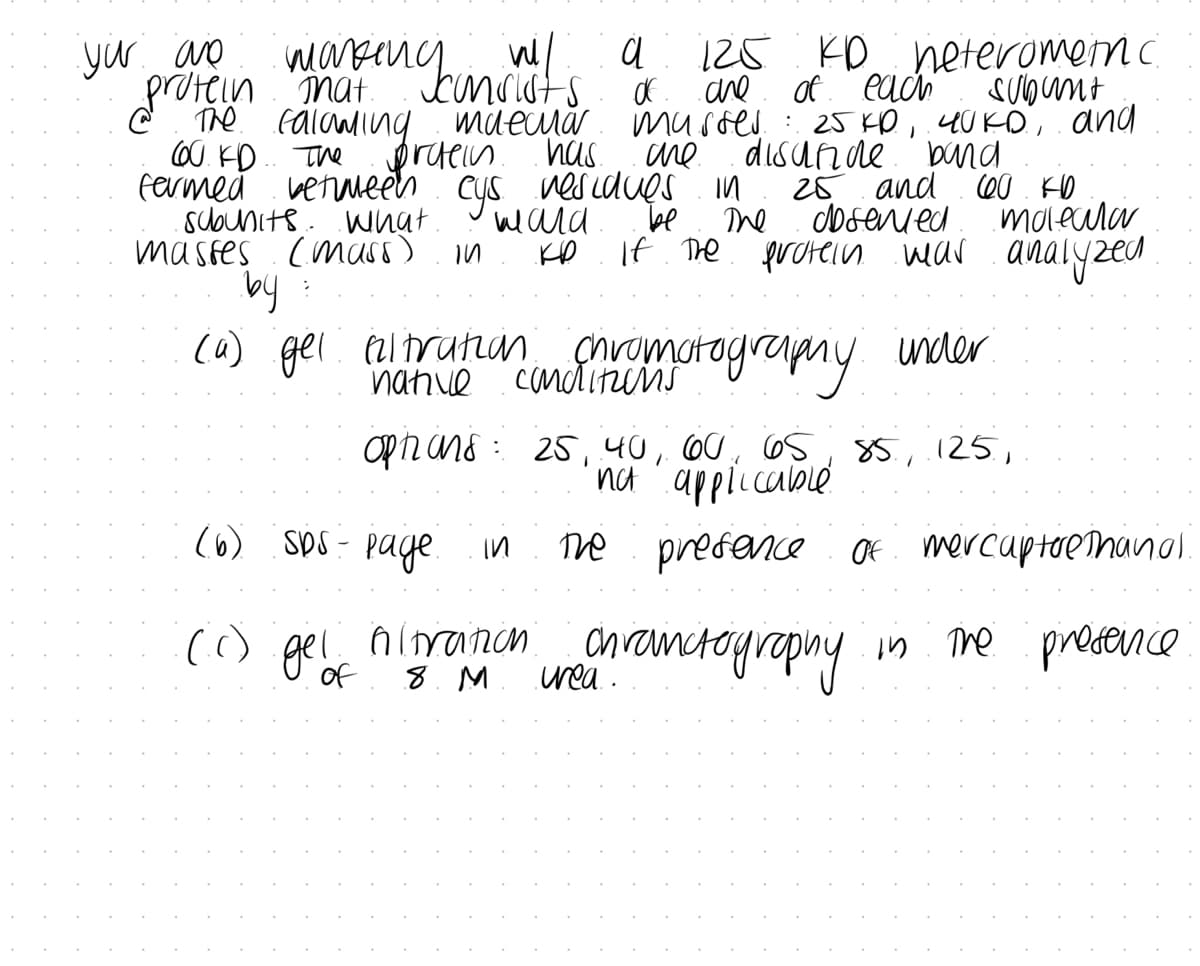 you are working w/ a 125 KD heteromeric
protein that consists of one of each subunit
@ the following molecular masses : 25 KD, 40 KD, and
60 KD. The protein has one disulfide bond
formed between cys residues in 25 and 60 KD
subunits. what would be the observed molecular
masses (mass) in KD if the protein was analyzed
by :
(a) gel filtration chromotography under
native conditions
options : 25, 40, 60, 65, 85, 125,
not applicable
(b) SDS - page in the presence of mercaptoethanol.
(c) gel filtration chromotography in the presence
of 8 M urea.